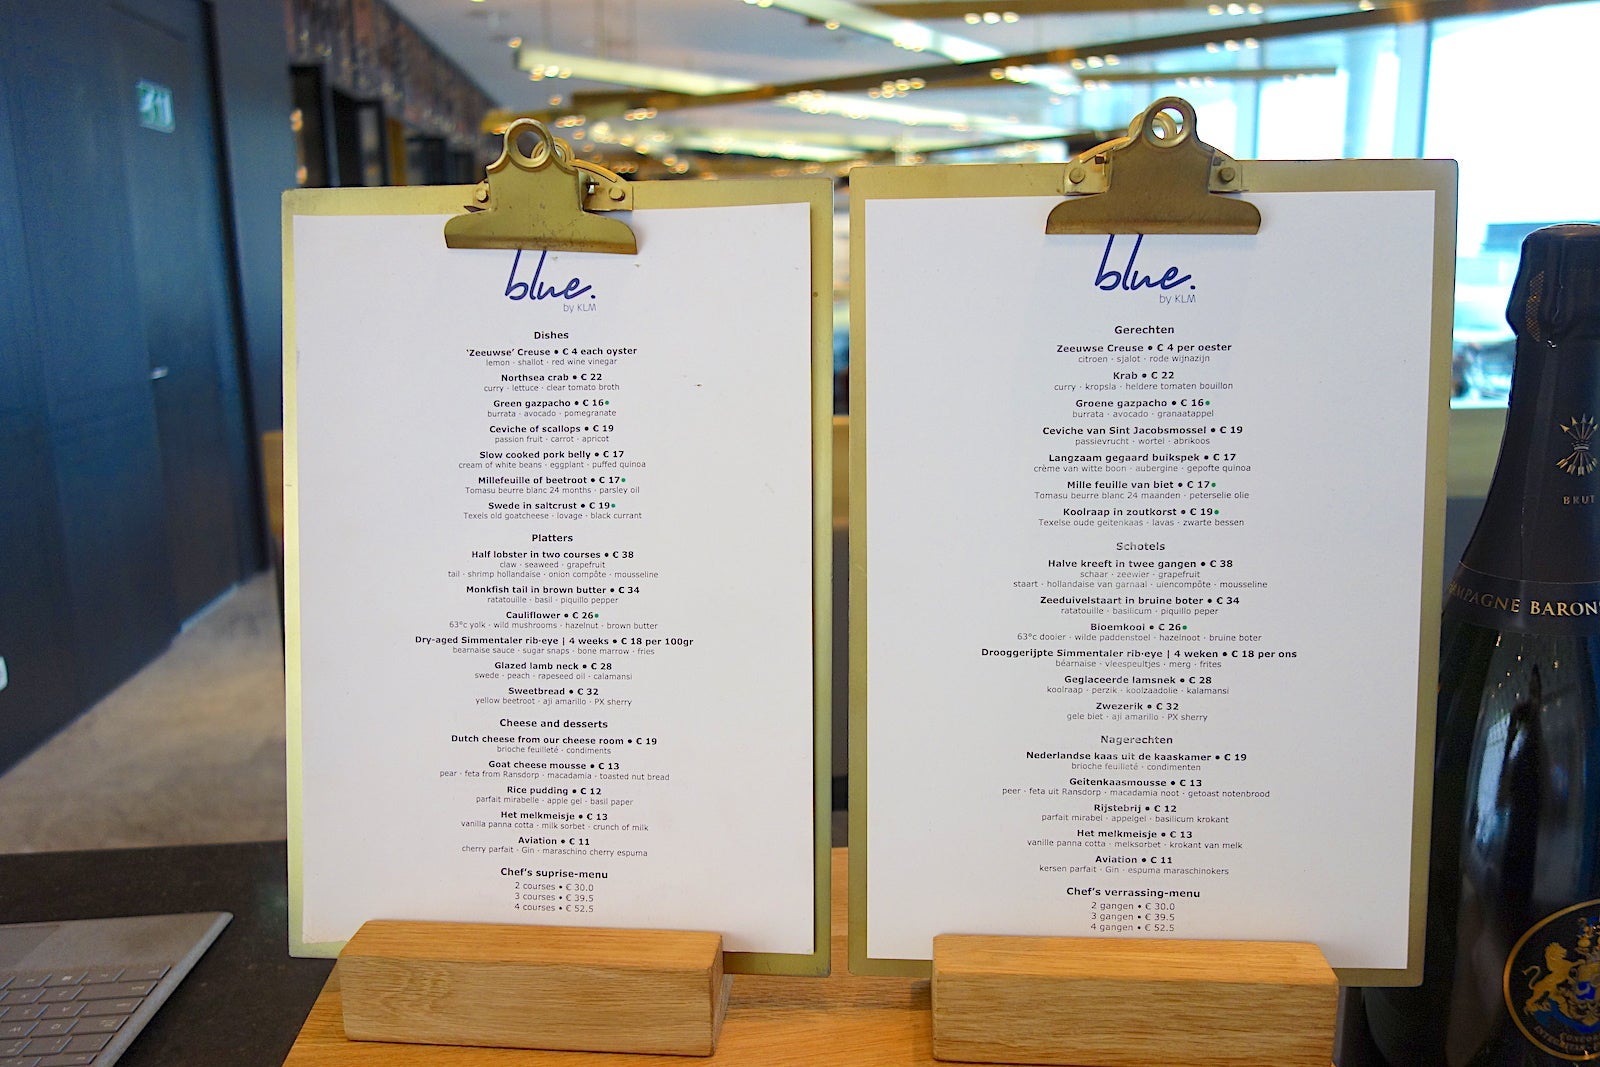 blue.
by KLM
Dishes
'Zeeuwse' Creuse • € 4 each oyster
lemon · shallot · red wine vinegar
Northsea crab • € 22
curry · lettuce · clear tomato broth
Green gazpacho • € 16•
burrata · avocado · pomegranate
Ceviche of scallops • € 19
passion fruit · carrot · apricot
Slow cooked pork belly • € 17
cream of white beans · eggplant · puffed quinoa
Millefeuille of beetroot • € 17•
Tomasu beurre blanc 24 months · parsley oil
Swede in saltcrust • € 19•
Texels old goatcheese · lovage · black currant
Platters
Half lobster in two courses • € 38
claw · seaweed · grapefruit
tail · shrimp hollandaise · onion compôte · mousseline
Monkfish tail in brown butter • € 34
ratatouille · basil · piquillo pepper
Cauliflower • € 26•
63°c yolk · wild mushrooms · hazelnut · brown butter
Dry-aged Simmentaler rib-eye | 4 weeks • € 18 per 100gr
bearnaise sauce · sugar snaps · bone marrow · fries
Glazed lamb neck • € 28
swede · peach · rapeseed oil · calamansi
Sweetbread • € 32
yellow beetroot · aji amarillo · PX sherry
Cheese and desserts
Dutch cheese from our cheese room • € 19
brioche feuilleté · condiments
Goat cheese mousse • € 13
pear · feta from Ransdorp · macadamia · toasted nut bread
Rice pudding • € 12
parfait mirabelle · apple gel · basil paper
Het melkmeisje • € 13
vanilla panna cotta · milk sorbet · crunch of milk
Aviation • € 11
cherry parfait · Gin · maraschino cherry espuma
Chef's suprise-menu
2 courses • € 30.0
3 courses • € 39.5
4 courses • € 52.5
blue.
by KLM
Gerechten
Zeeuwse Creuse • € 4 per oester
citroen · sjalot · rode wijnazijn
Krab • € 22
curry · kropsla · heldere tomaten bouillon
Groene gazpacho • € 16•
burrata · avocado · granaatappel
Ceviche van Sint Jacobsmossel • € 19
passievrucht · wortel · abrikoos
Langzaam gegaard buikspek • € 17
crème van witte boon · aubergine · gepofte quinoa
Mille feuille van biet • € 17•
Tomasu beurre blanc 24 maanden · peterselie olie
Koolraap in zoutkorst • € 19•
Texelse oude geitenkaas · lavas · zwarte bessen
Schotels
Halve kreeft in twee gangen • € 38
schaar · zeewier · grapefruit
staart · hollandaise van garnaal · uiencompôte · mousseline
Zeeduivelstaart in bruine boter • € 34
ratatouille · basilicum · piquillo peper
Bloemkool • € 26•
63°c dooier · wilde paddenstoel · hazelnoot · bruine boter
Drooggerijpte Simmentaler rib-eye | 4 weken • € 18 per ons
béarnaise · vleespeultjes · merg · frites
Geglaceerde lamsnek • € 28
koolraap · perzik · koolzaadolie · kalamansi
Zwezerik • € 32
gele biet · aji amarillo · PX sherry
Nagerechten
Nederlandse kaas uit de kaaskamer • € 19
brioche feuilleté · condimenten
Geitenkaasmousse • € 13
peer · feta uit Ransdorp · macadamia noot · getoast notenbrood
Rijstebrij • € 12
parfait mirabel · appelgel · basilicum krokant
Het melkmeisje • € 13
vanille panna cotta · melksorbet · krokant van melk
Aviation • € 11
kersen parfait · Gin · espuma maraschinokers
Chef's verrassing-menu
2 gangen • € 30.0
3 gangen • € 39.5
4 gangen • € 52.5
BRUT
MPAGNE BARON